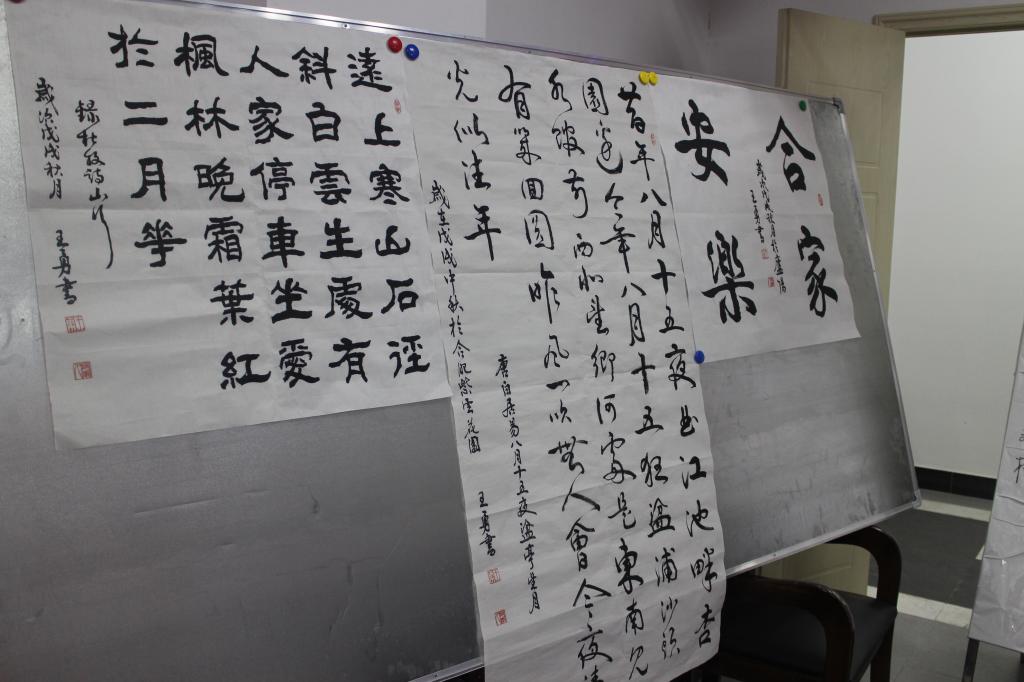 合家
安樂
歲次戊戌秋月於廬陽
王勇書
昔年八月十五夜曲江池畔杏
園邊今年八月十五狂湓浦沙頭
水館前西北望鄉何處是東南見
有幾回圓昨風一吹無人會今夜清
光似往年
唐白居易八月十五夜湓亭望月
歲在戊戌中秋於合肥紫雲花園
王勇書
遠上寒山石徑
斜白雲生處有
人家停車坐愛
楓林晚霜葉紅
於二月華
錄杜牧詩山行
歲次戊戌秋月
王勇書